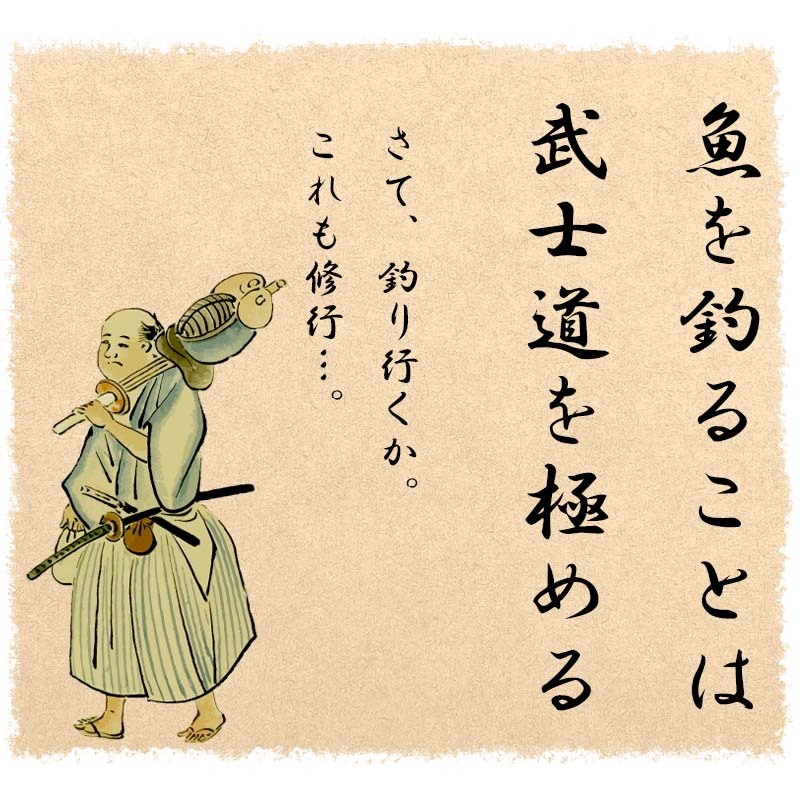 魚を釣ることは
武士道を極める
さて、釣り行くか。
これも修行…。